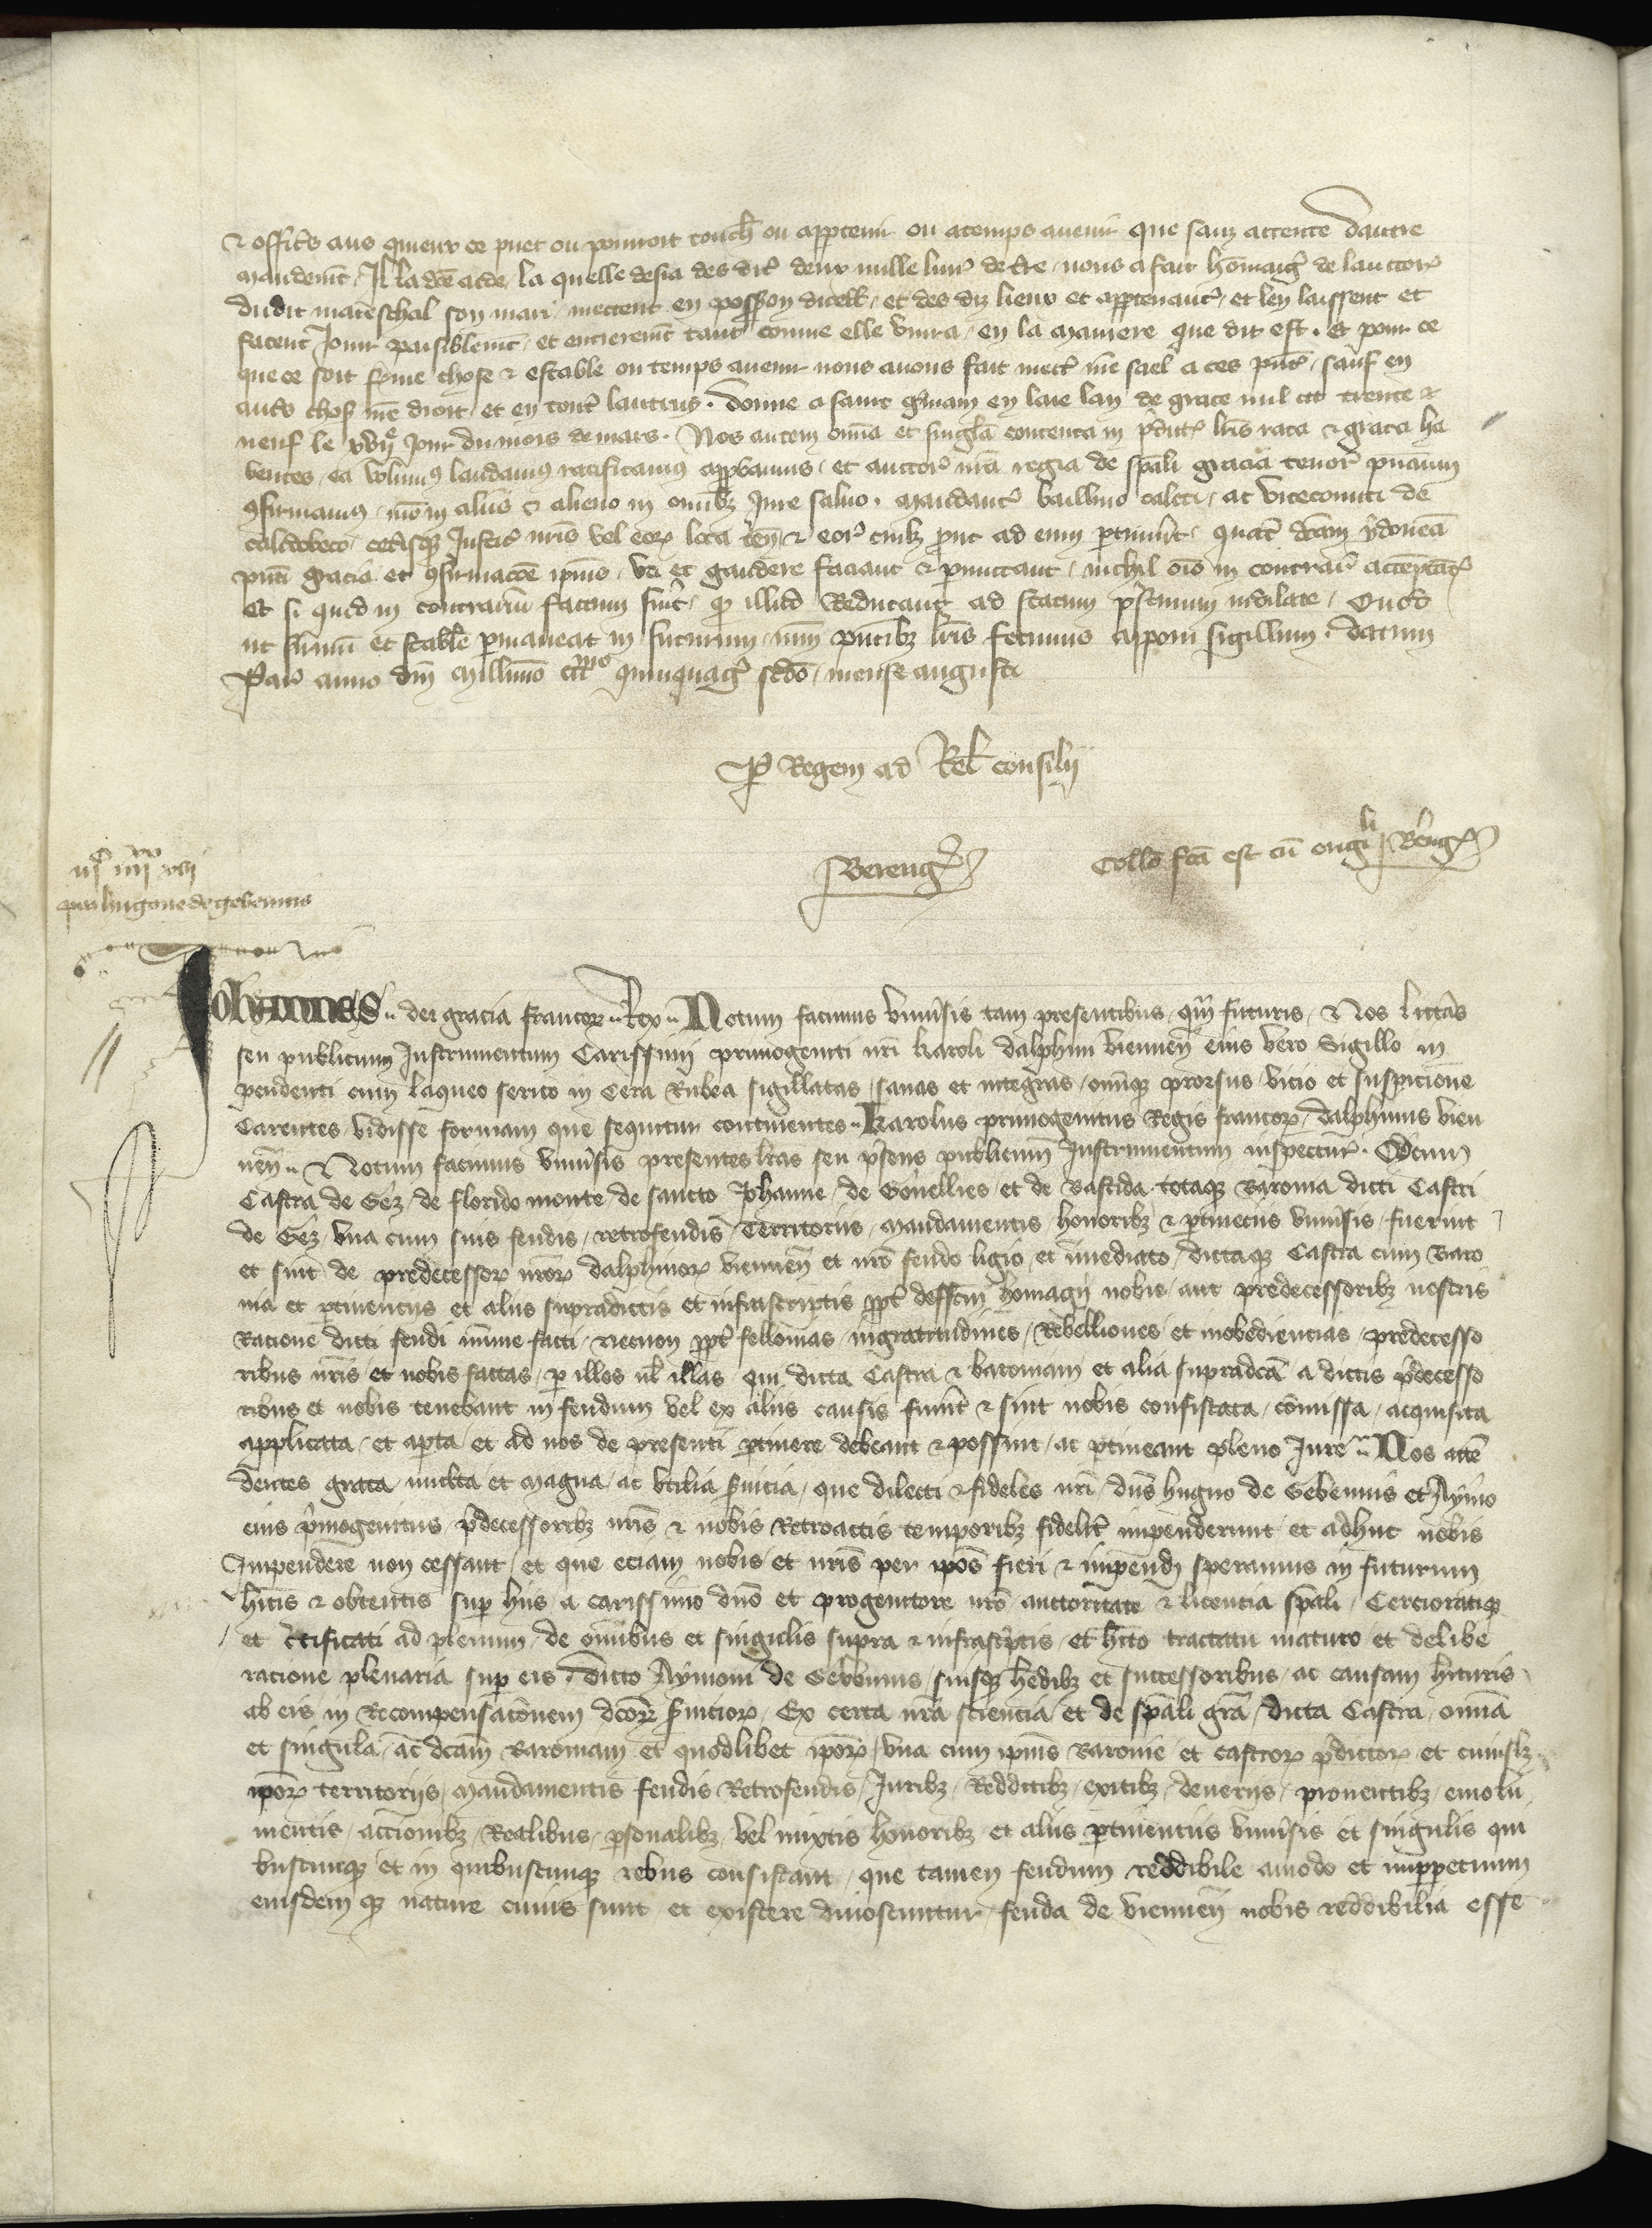 & offic̃s aus quieux ce puet ou pourroit touch̃ ou apptenir ou atemps avenir que sanz attente dautre
mandem̃t. Il lad̃ce acde, la quelle desia des dic̃ deux mille liur̃ de t̃re nous a fait hõmaig̃ de lauctor̃
dudit mareschal son mari mettent en possion dicell̃, et des diz lieux et apptenanc̃, et len laissent et
facent Jouir paisiblem̃t et entierem̃t tant comme elle viura en la maniere que dit est. Et pour ce
que ce soit ferme chose & estable ou temps auenir nous auons fait mect̃ ñre sael a ces p̃ñt̃, sauf en
aut̃s chos̃ ñre droit et en tout̃ lautruy. Donne a saint gm̃ain en laie lan de grace mil ccc trente &
neuf le xvij̃e Jour du mois de mars. Nos autem om̃ia et singl̃a contenta in p̃dict̃ lr̃is rata & grata ha
bentes, ea volumus laudamus ratificamus approbamus, et auctor̃ nr̃a regia de sp̃ali gracia tenor̃ p̃ncium
9firmamus, nr̃o in aliis & alieno in omĩbz Jure saluo. Mandant̃ bailliuo caleti, ac vicecomiti de
calidobeco, cet̃isqz Justic̃ nr̃is vel eor̃ loca ten̄ & eor̃ cuil̃z prout ad eum p̃tinuit. Quat̃ dc̃am ydoneã
p̃nti gracia et 9firmacõe ip̃ius, vti et gaudere faciant & p̃mittant, nichil om̃o in contrar̃ acceptãt̃
Et si quid in contrariũ factum fuit̃, qz illud Reducant ad statum p̃stinum indilate. Quod
ut firmũ et stabl̃e p̃maneat in futurum nr̃m p̃ntibz lr̃is fecimus apponi sigillum. Datum
Par̃ anno dñi millimo ccc̃mo quinquag̃ scd̃o, mense augusti
P̃ Regem ad Rel̃ consilij
Bereng̃
Collo fc̃a est cũ origĩli Bereng̃
iijc iiijxx xvij
pro hugone de gebennis
Johannes dei gracia francor̃ Rex Notum facimus vniũsis tam presentibus qm̃ futuris, Nos litt̃as
seu publicum Instrumentum Carissimi primogeniti nr̃i karoli dalphini viennen̄ eius vero Sigillo in
pendenti cum laqueo serico in Cera Rubea sigillatas, sanas et integras, om̃iqz prorsus vicio et suspicione
Carentes vidisse formam que sequitur continentes Karolus primogenitus Regis francor̃, dalphinus vien
nen̄ Notum facimus vniũsis presentes lr̃as seu p̃sens publicum Instrumentum inspectur̃. Q̃cum
Castra de Gez, de florido monte de sancto Johanne, de Gonellies, et de Bastida totaqz Baronia dicti Castri
de Gez, vna cum suis feudis, retrofeudis Territoriis, Mandamentis honoribz & p̃tinenciis vniũsis, fuerint
et sint de predecessor̃ nr̃or̃ dalphinor̃ viennen̄ et nr̃o feudo ligio, et ĩmediato, dictaqz Castra cum Baro
nia et p̃tinenciis et aliis supradictis et infrascriptis ppt̃ deffc̃m homagij nobis, aut predecessoribz nostris
Racione dicti feudi minime facti, Necnon ppt̃ fellonias, ingratitudines, Rebelliones et inobediencias predecesso
ribus nr̃is et nobis factas, p̃ illos ul̃ illas qui dicta Castra & baroniam et alia supradc̃a a dictis p̃decesso
ribus et nobis tenebant in feudum vel ex aliis causis fuint̃ & sint nobis confiscata, cõmissa, acquisita
applicata, et apta et ad nos de presenti p̃tinere debeant & possint, ac p̃tineant pleno Jure Nos attẽ
dentes grata, multa et magna, ac vtilia s̃uicia, que dilecti & fideles nr̃i, dñs hugno de Gebennis et Aymo
eius p̃mogenitus, p̃decessoribz nr̃is & nobis Retroactis temporibz fidelit̃ impenderunt et adhuc nobis
Impendere non cessant, et que eciam nobis et nr̃is per ip̃os fieri & impendj speramus in futurum
h̃itis & obtentis sup̃ hiis a carissimo dño et progenitore nr̃o auctoritate & licencia sp̃ali, Cercioratiqz
et c̃tificati ad plenum de omnibus et singulis supra & infrascriptis, et h̃ito tractatu maturo et delibe
racione plenaria sup̃ eis, Dicto Aymoni de Gebennis, suisqz hedibz et successoribus, ac causam h̃ituris
ab eis, in Recompensacõnem dc̃or̃ s̃uicior̃, Ex certa nr̃a sciencia et de sp̃ali gr̃a, dicta Castra, omnia
et singula, ac dc̃am Baroniam et quodlibet ip̃or̃, vna cum ip̃ius Baronie et castror̃ p̃dictor̃ et cuiusl̃z
ip̃or̃ territoriis, mandamentis feudis Retrofeudis, Juribz, Redditibz, exitibz, deueriis, prouentibz, emolu
mentis, accionibz, Realibus, p̃sonalibz vel mixtis honoribz et aliis p̃tinentiis vniũsis et singulis qui
buscunqz et in quibuscunqz rebus consistant, que tamen feudum reddibile amodo et imp̃petuum
eiusdem qz nature cuius sunt et existere dinoscuntur, feuda de viennen̄ nobis reddibilia esse